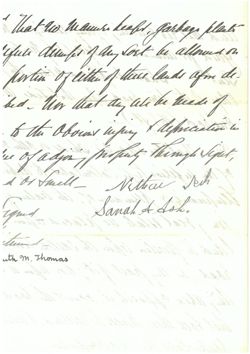 That no manure heaps, garbage plants
dumps of any sort be allowed on
portion of either of these lands afore de
bed. Nor that any use be made of
to the obvious injury & depreciation in
ue of adjoin, property through sight,
d or Smell –
Sarah A Ash.
Signed
uth M. Thomas